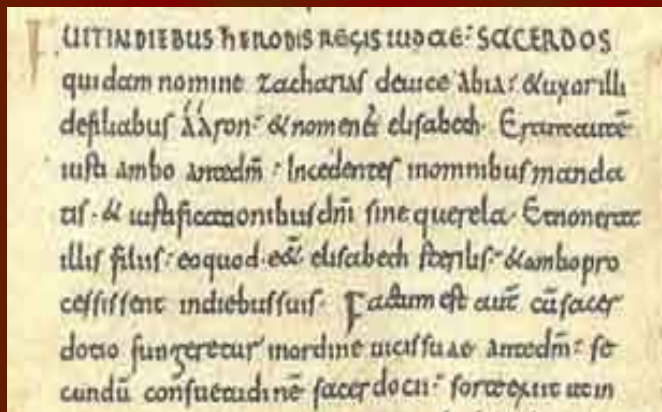 FUIT IN DIEBUS hERODIS REGIS IUDAE: SACERDOS
quidam nomine zacharias deuice abia: & uxor illi
defiliabus aaron: & nomen ei elisabeth. Erant autē
iusti ambo ante dm̄: Incedentes in omnibus manda
tis. & iustificationibus dn̄i sine querela. Et non erat
illis filius: eo quod eēt elisabeth sterilis: & ambo pro
cessissent in diebus suis. Factum est autē cū sacer
dotio fungeretur in ordine uicis suae ante dm̄: se
cundū consuetudinē sacerdotii: sorte exiit ut in